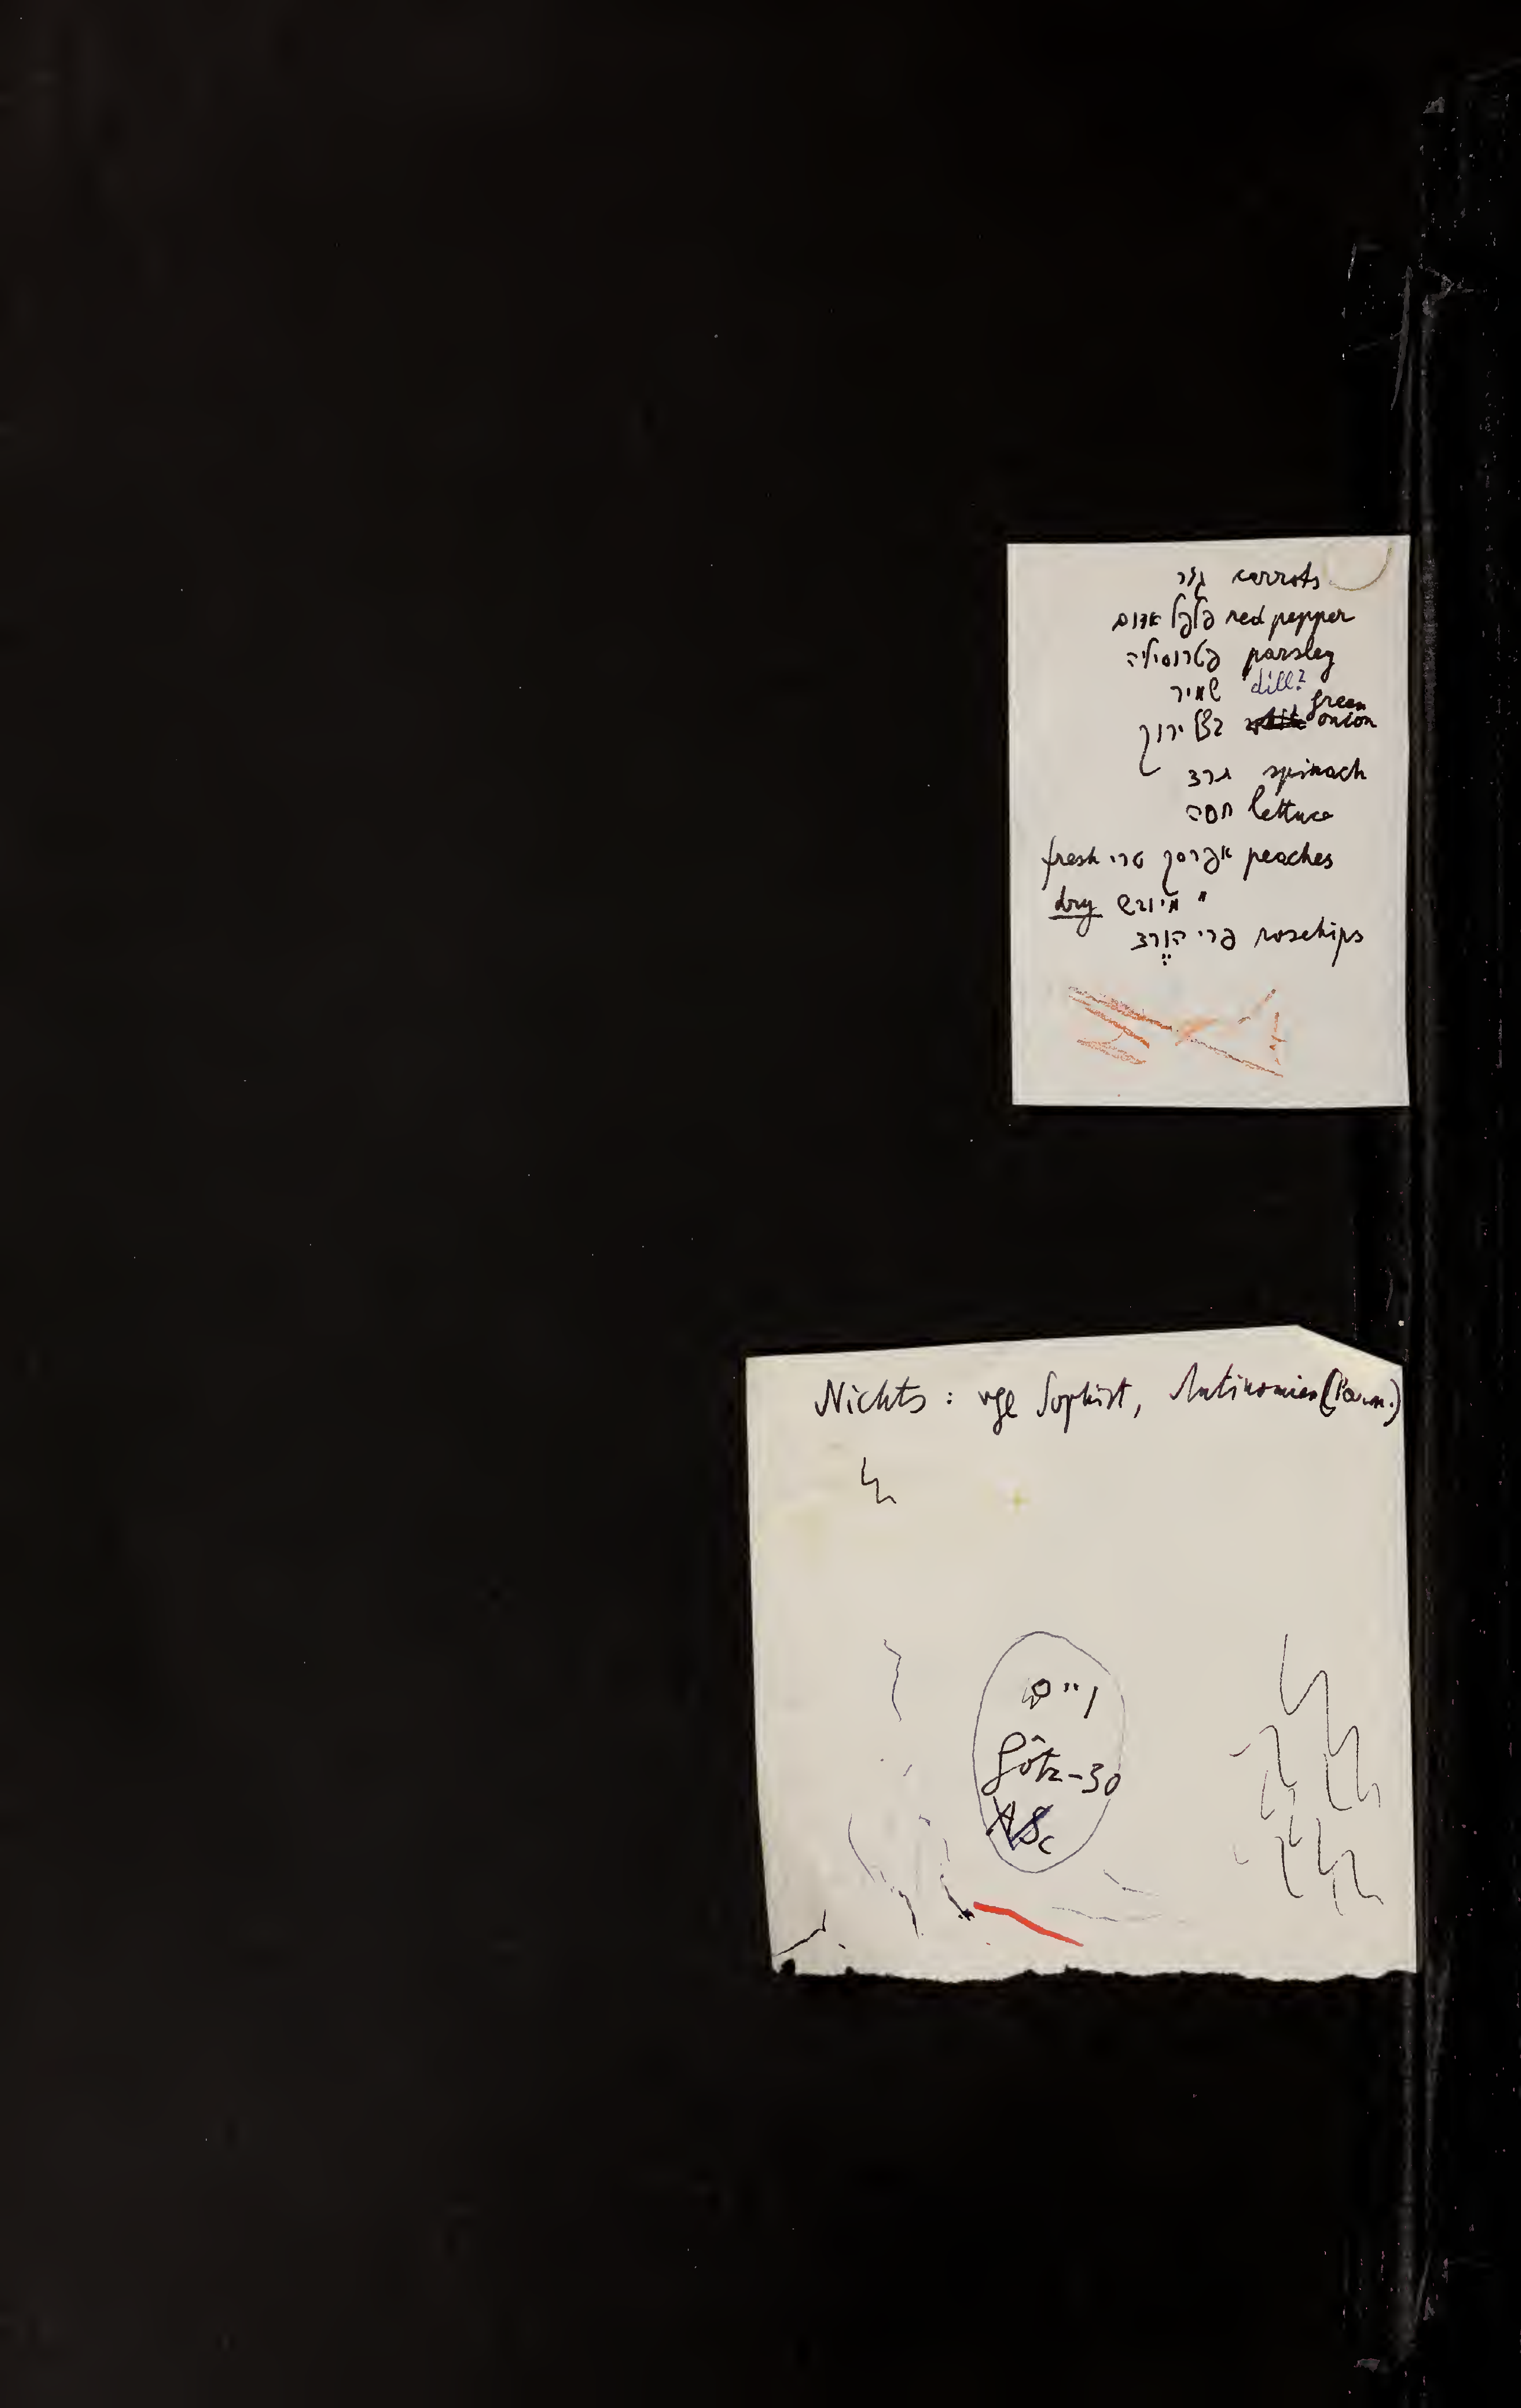 גזר carrots
פלפל אדום red pepper
פטרוסיליה parsley
שמיר dill?
בצל ירוק green onion
גרצ spinach
חסה lettuce
fresh אפרסק טרי peaches
dry מיובש "
פרי הורצ rosehips
Nichts: vgl Sophist, Antinomien (Parm.)
Götz-30